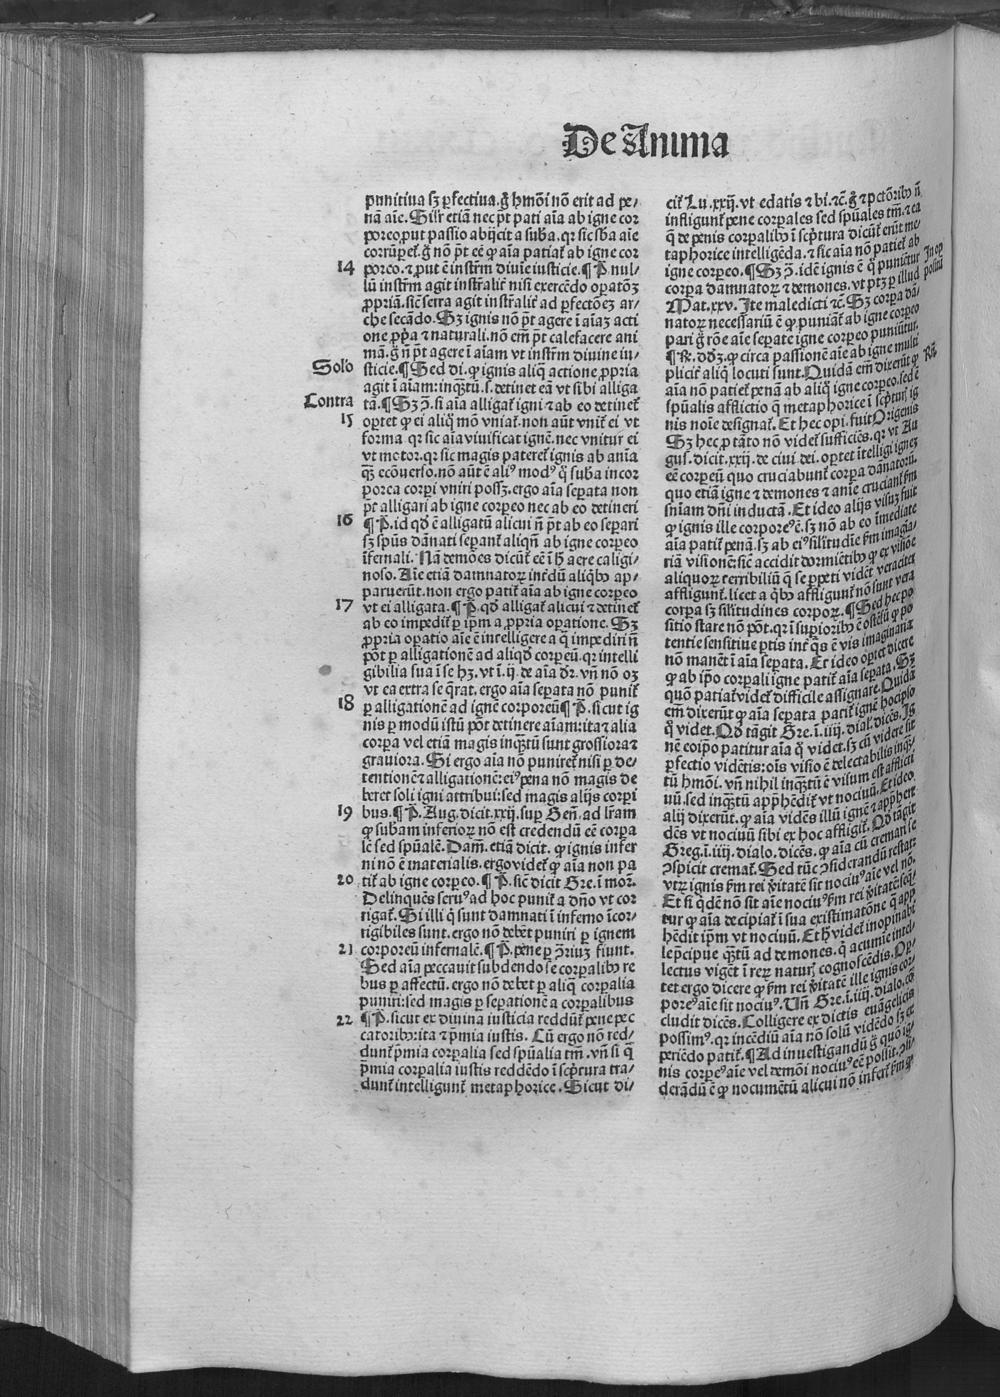 De Anima
punitiua sꝫ ꝑfectiua. g̊ hmōi nō erit ad pe-
nā aīe. Silr̄ etiā nec pt̄ pati aīa ab igne cor
poreo, put passio abijcit a suba. qr sic sba aīe
corrūpet̄. g̊ nō pt̄ eē ꝙ aīa patiat̄ ab igne cor
14 poreo. ⁊ put ē instrm̄ diuīe iusticie. ¶ P. nul-
lū instrm̄ agit instr̄alit̄ nisi exercēdo oꝑatōeꝫ
ꝓpriā. sic̄ serra agit instr̄alit̄ ad ꝑfectōeꝫ ar-
che secādo. Sꝫ ignis nō pt̄ agere ī aīaꝫ acti
one ꝓpa ⁊ naturali. nō em̄ pt̄ calefacere ani
mā. g̊ ñ pt̄ agere ī aīam vt instrm̄ diuine iu-
Solō sticie. ¶ Sed di. ꝙ ignis aliq̄ actione ꝓpria
agit ī aīam: inqꝫtū. s. detinet eā vt sibi alliga
Contra ta. ¶ Sꝫ ꝫ. si aīa alligat̄ igni ⁊ ab eo detinet̄
15 oꝑtet ꝙ ei aliq̄ mō vniat̄. nō aūt vnit̄ ei vt
forma. qr sic aīa viuificat ignē. nec vnitur ei
vt motor. qr sic magis pateret̄ ignis ab anīa
qꝫ ecōuerso. nō aūt ē aliꝰ modꝰ q̊ suba incor
porea corpi vniri possꝫ. ergo aīa seꝑata non
pt̄ alligari ab igne corpeo nec ab eo detineri
16 ¶ P. id qd̄ ē alligatū alicui ñ pt̄ ab eo separi
sꝫ spūs dānati sepant̄ aliqñ ab igne corpeo
īfernali. Nā demōes dicūt̄ eē ī h̊ aere caligi-
noso. Aīe etiā damnatoꝝ int̄dū aliqbꝰ ap-
paruerūt. non ergo patit̄ aīa ab igne corpeo
17 vt ei alligata. ¶ P. qd̄ alligat̄ alicui ⁊ detinet̄
ab eo impedit̄ ꝑ ipm̄ a ꝓpria oꝑatione. Sꝫ
ꝓpria oꝑatio aīe ē intelligere a q̄ impediri ñ
pōt ꝑ alligationē ad aliqd̄ corpeū. qr intelli
gibilia sua ī se hꝫ. vt ī. ij. de aīa dr̄. vn̄ nō oꝫ
vt ea extra se q̄rat. ergo aīa seꝑata nō punit̄
18 ꝑ alligationē ad ignē corporeū ¶ P. sicut ig
nis ꝑ modū istū pōt detinere aīam: ita ⁊ alia
corpa vel etiā magis inqꝫtū sunt grossiora ⁊
grauiora. Si ergo aīa nō puniret̄ nisi ꝑ de-
tentionē ⁊ alligationē: eiꝰ pena nō magis de
beret soli igni attribui: sed magis alijs corpi
19 bus. ¶ P. Aug. dicit. xxij. suꝑ Gen̄. ad lr̄am
ꝙ subam inferioꝝ nō est credendū eē corpa
lē sed spūalē. Dam̄. etiā dicit. ꝙ ignis infer
ni nō ē materialis. ergo videt̄ ꝙ aīa non pa
20 tit̄ ab igne corpeo. ¶ P. sic̄ dicit Gre. ī moꝛ.
Delinquēs seruꝰ ad hoc punit̄ a dn̄o vt cor
rigat̄. Si illi q̄ sunt damnati ī inferno īcor-
rigibiles sunt. ergo non debēt puniri ꝑ ignem
21 corporeū infernalē. ¶ P. pene ꝑ ꝯriuꝫ fiunt.
Sed aīa peccauit subdendo se corpalibꝰ re
bus ꝑ affectū. ergo nō debet ꝑ aliq̄ corpalia
puniri: sed magis ꝑ seꝑationē a corpalibus
22 ¶ P. sicut ex diuina iusticia reddūt̄ pene pec
catoribꝰ: ita ⁊ pmia iustis. Cū ergo nō red-
dunt̄ pmia corpalia sed spūalia tm̄. vn̄ si q̄
pmia corpalia iustis reddēdo ī scptura tra-
dunt̄ intelligunt̄ metaphorice. Sicut di-
cit̄ Lu. xxij. vt edatis ⁊ bi. ⁊c̄. g̊ ⁊ pctōribꝰ ñ
infligunt̄ pene corpales sed spūales tm̄. ⁊ ea
q̄ de penis corpalibꝰ ī scptura dicūt̄ erūt me-
taphorice intelligēda. ⁊ sic aīa nō patiet̄ ab
In op igne corpeo. ¶ Sꝫ ꝫ. idē ignis ē q̊ puniētur
positū corpa damnatoꝝ ⁊ demones. vt ptꝫ ꝑ illud
Mat. xxv. Ite maledicti ⁊c̄. Sꝫ corpa dā-
natoꝝ necessariū ē ꝙ puniāt̄ ab igne corpeo
pari g̊ rōe aīe seꝑate igne corpeo puniūtur.
Rn̄. ¶ R̄. dd̄ꝫ. ꝙ circa passionē aīe ab igne multi
plicit̄ aliq̄ locuti sunt. Quidā em̄ dixerūt ꝙ
aīa nō patiet̄ penā ab aliq̄ igne corpeo. sed ē
spūalis afflictio q̄ metaphorice ī scptur̄ ig
nis noīe designat̄. Et hec opi. fuit Origenis
Sꝫ hec ꝓ tāto nō videt̄ sufficiēs. qr vt Au
gus. dicit. xxij. de ciui. dei. oꝑtet ītelligi igneꝫ
eē corpeū quo cruciabunt̄ corpa dānatorū.
quo etiā igne ⁊ demones ⁊ anīe cruciant̄ ẜm
sn̄iam dn̄i inductā. Et ideo alijs visuꝫ fuit
ꝙ ignis ille corporeꝰ ē. sꝫ nō ab eo īmediate
aīa patit̄ penā. sꝫ ab eiꝰ silitudīe ẜm imagīa-
riā visionē: sic̄ accidit dormiētibꝰ ꝙ ex visiōe
aliquoꝝ terribiliū q̄ se ꝑpeti vidēt veraciter
affligunt̄. licet a qbꝰ affligunt̄ nō sunt vera
corpa sꝫ silitudines corpoꝝ. ¶ Sed hec po
sitio stare nō pōt. qr ī superiorib ē ostēsū ꝙ po
tentie sensitiue ꝑtis int̄ qs ē vis imaginaria
nō manēt ī aīa seꝑata. Et ideo oꝑtet dicere
ꝙ ab ipo corpali igne patit̄ aīa seꝑata. Sꝫ
quō patiat̄ videt̄ difficile assignare. Quidā
em̄ dixerūt ꝙ aīa seꝑata patit̄ ignē hoc ipso
q̊ videt. Qd̄ tāgit Gre. ī. iiij. dial. dicēs. Ig
nē eo ipo patitur aīa q̊ videt. sꝫ cū videre sit
ꝑfectio vidētis: oīs visio ē delectabilis inqꝫ-
tū hmōi. vn̄ nihil inqꝫtū ē visum est afflicti
uū. sed inqꝫtū app̄hēdit̄ vt nociuū. Et ideo
alij dixerūt. ꝙ aīa vidēs illū ignē ⁊ app̄hen-
dēs vt nociuū sibi ex hoc affligit̄. Qd̄ tāgit
Greg. ī. iiij. dialo. dicēs. ꝙ aīa cū cremari se
ꝯspicit cremat̄. Sed tūc ꝯsiderandū restat.
vtꝝ ignis ẜm rei v̄itatē sit nociuꝰ aīe vel nō.
Et si qdē nō sit aīe nociuꝰ ẜm rei v̄itatē seq̄-
tur ꝙ aīa decipiat̄ ī sua existimatōne q̄ app̄
hēdit ipm̄ vt nociuū. Et h̊ videt̄ inopinabi
le p̄cipue qꝫtū ad demones. q̄ acumīe intel-
lectus vigēt ī reꝝ natur̄ cognoscēdis. Op-
tet ergo dicere ꝙ ẜm rei v̄itatē ille ignis cor-
poreꝰ aīe sit nociuꝰ. Vn̄ Gre. ī. iiij. dialo. cō
cludit dicēs. Colligere ex dictis euāgelicis
possimꝰ. qr incēdiū aīa nō solū vidēdo sꝫ ex
periēdo patit̄. ¶ Ad inuestigandū g̊ quō ig-
nis corpeꝰ aīe vel demōi nociuꝰ eē possit. ꝯsi-
derādū ē ꝙ nocumētū alicui nō infert̄ ẜm ꝙ